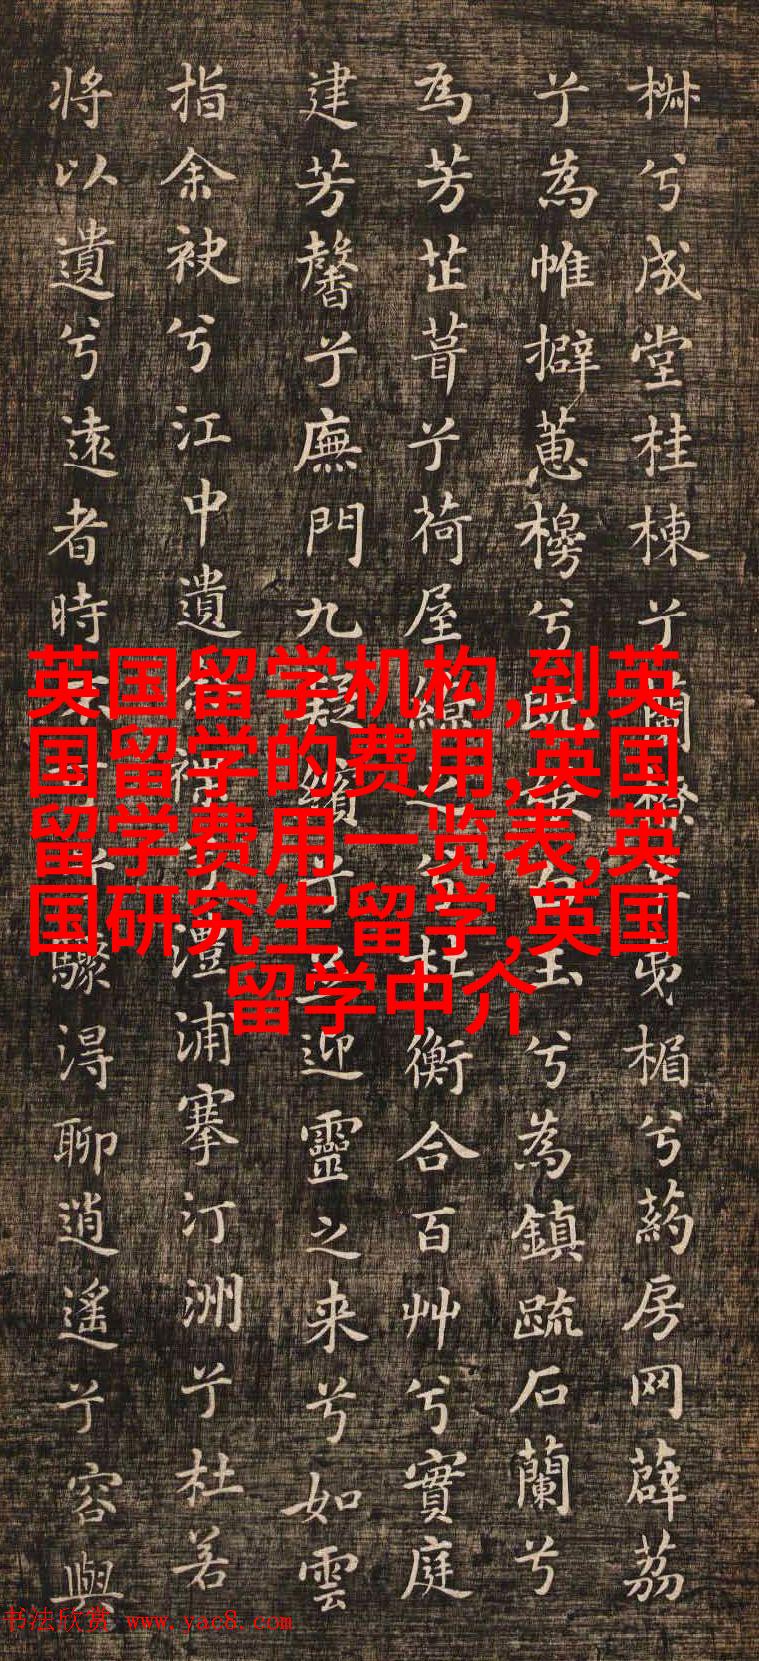 椒兮成堂桂棟兮蘭橑辛夷楣兮葯房网薜荔
兮為帷擗蕙櫋兮既張白玉兮為鎮疏石蘭兮
為芳芷葺兮荷屋繚之兮杜衡合百艸兮實庭
建芳馨兮廡門九疑繽兮並迎靈之来兮如雲
指余袂兮江中遺余褋兮澧浦搴汀洲兮杜若
将以遺兮遠者時不可兮驟得聊逍遙兮容與
英国留学机构,到英
国留学的费用,英国
留学费用一览表,英
国研究生留学,英国
留学中介
书法欣赏 www.yac8.com